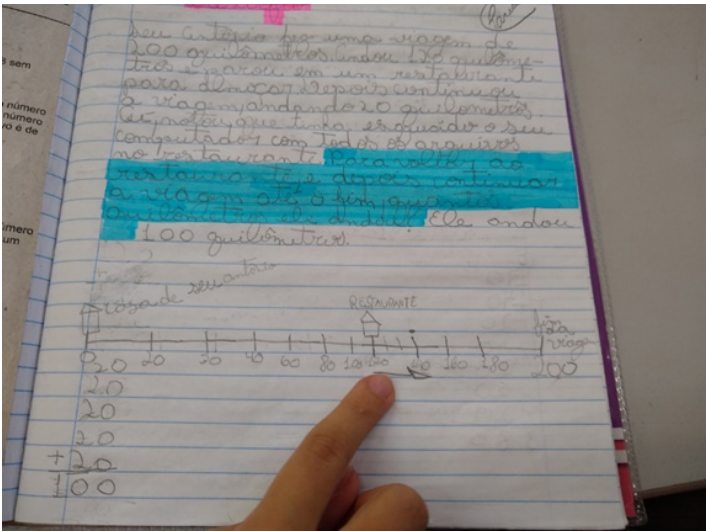 sem
número
número
vo e de
úmero
um
Seu Antônio fez uma viagem de
200 quilômetros. Andou 120 quilôme-
tros e parou em um restaurante
para almoçar. Depois continuou
a viagem, andando 20 quilometros.
notou que tinha esquecido o seu
computador com todos os arquivos
no restaurante. Para voltar ao
restaurante e depois continuar
a viagem até o fim, quantos
quilômetros ele andou? Ele andou
100 quilômetros.
casa de seu antônio
RESTAURANTE
fim da
viagem
0 20 40 60 80 100 120 160 180 200
20
20
20
20
+ 20
100